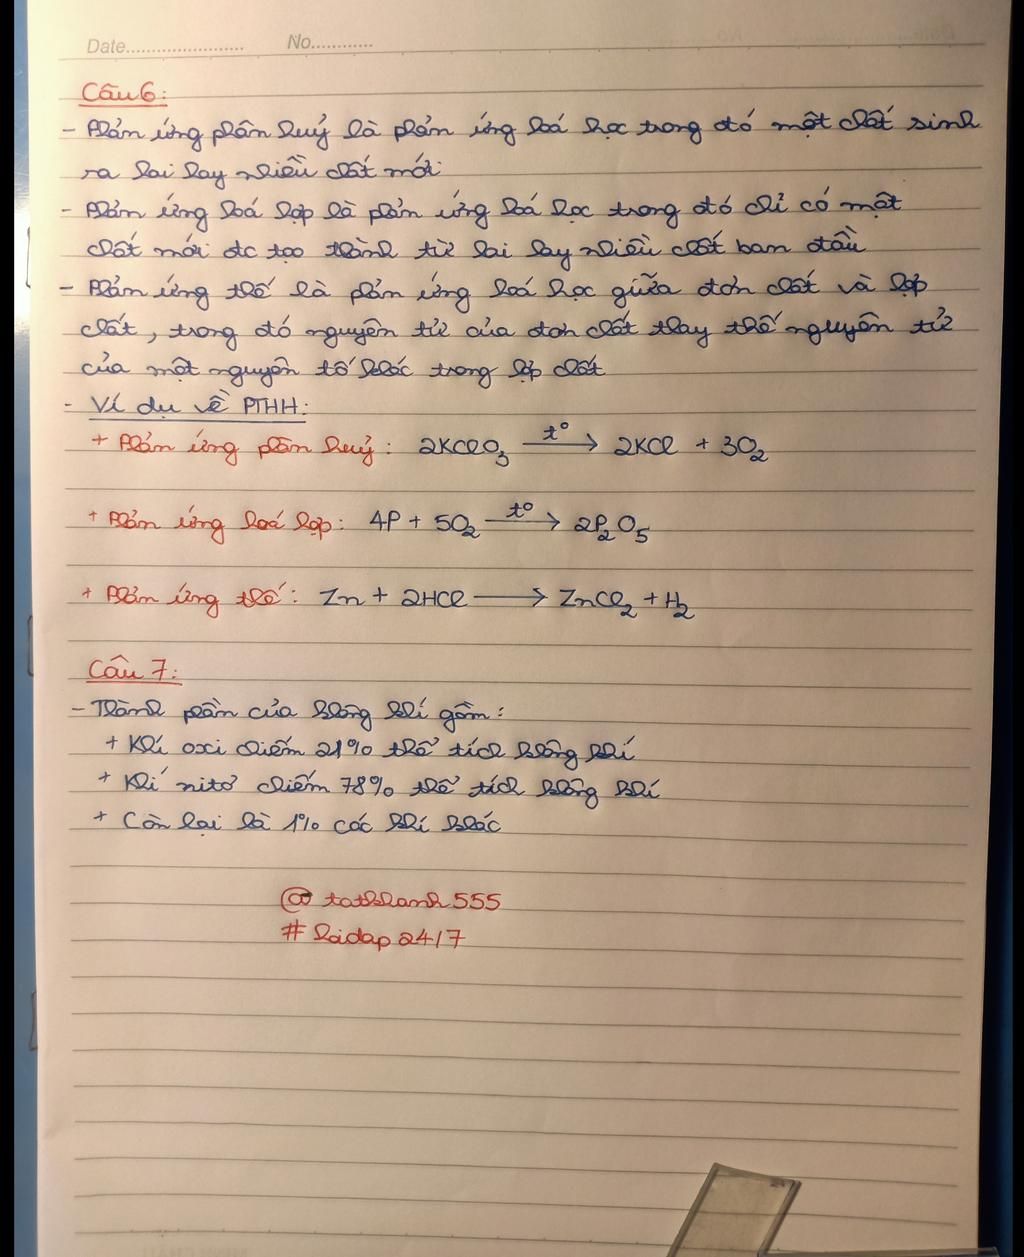 Date........................ No............
Câu 6:
- Phản ứng phân huỷ là phản ứng hoá học trong đó một chất sinh
ra hai hay nhiều chất mới
- Phản ứng hoá hợp là phản ứng hoá học trong đó chỉ có một
chất mới đc tạo thành từ hai hay nhiều chất ban đầu
- Phản ứng thế là phản ứng hoá học giữa đơn chất và hợp
chất, trong đó nguyên tử của đơn chất thay thế nguyên tử
của một nguyên tố khác trong hợp chất
- Ví dụ về PTHH:
+ Phản ứng phân huỷ: 2KClO₃ —t°→ 2KCl + 3O₂
+ Phản ứng hoá hợp: 4P + 5O₂ —t°→ 2P₂O₅
+ Phản ứng thế: Zn + 2HCl ⟶ ZnCl₂ + H₂
Câu 7:
- Thành phần của không khí gồm:
+ Khí oxi chiếm 21% thể tích không khí
+ Khí nitơ chiếm 78% thể tích không khí
+ Còn lại là 1% các khí khác
@ tathkhanh555
# hoidap24/7